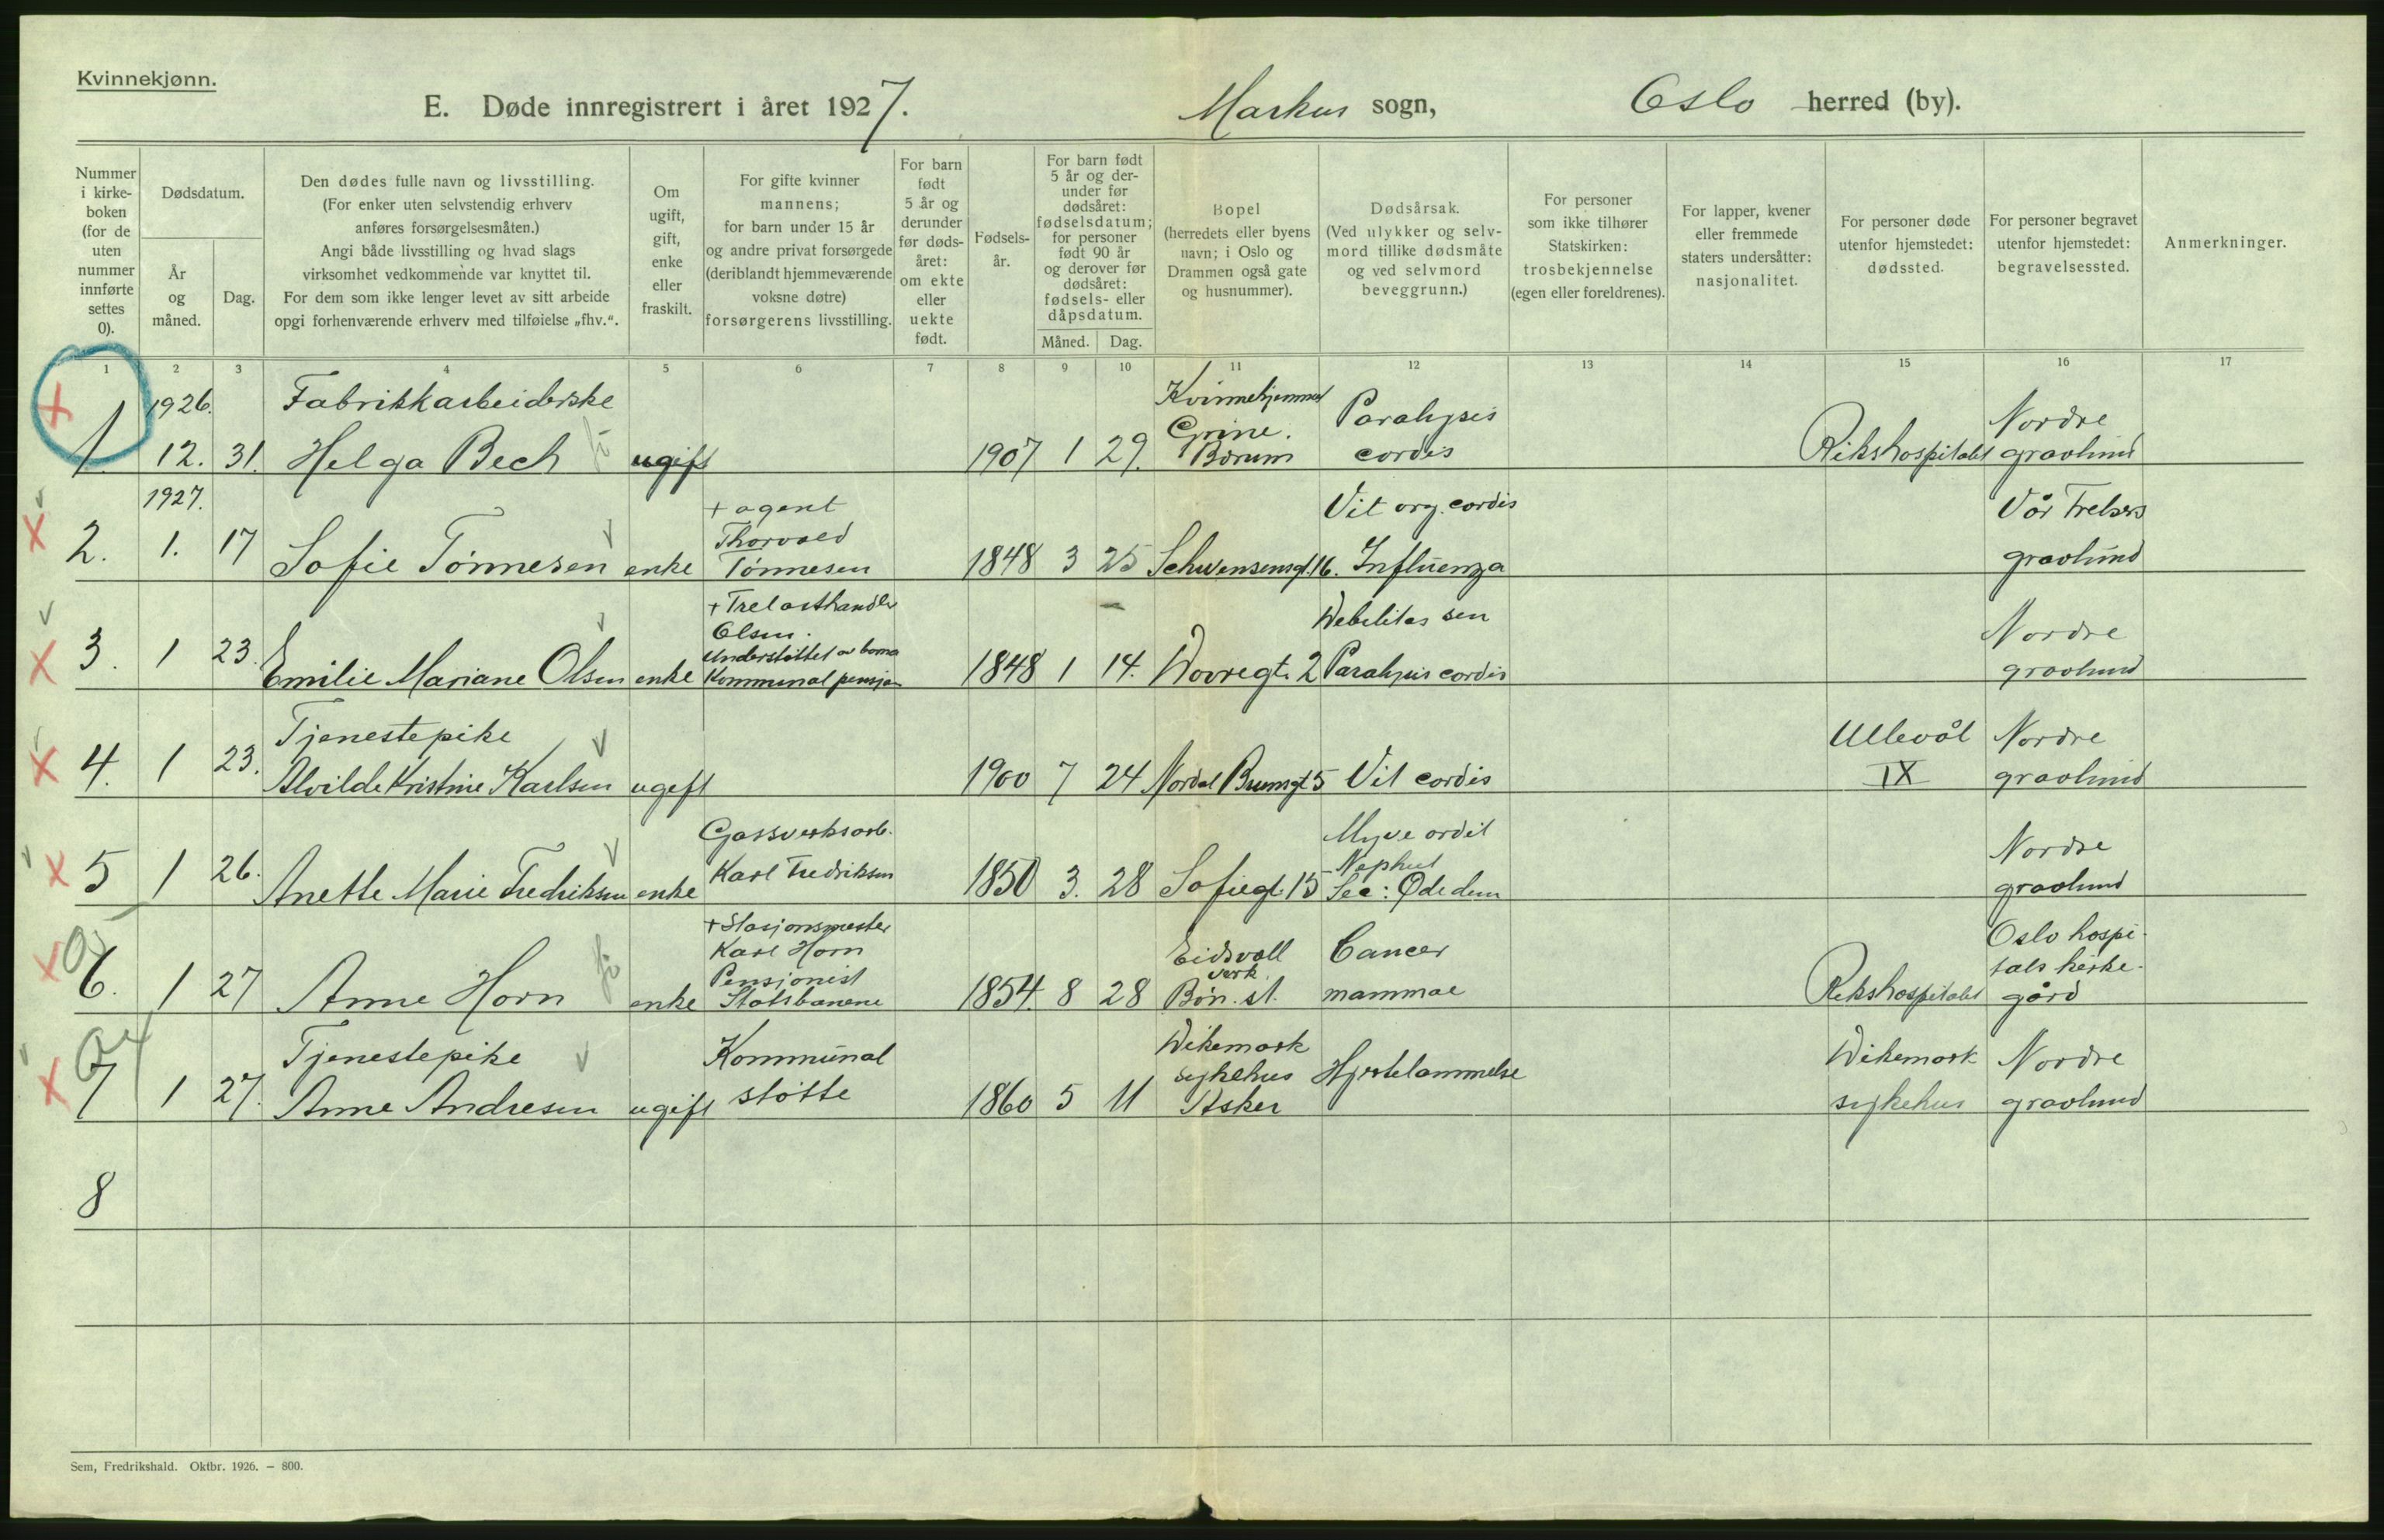 Kvinnekjønn.
E. Døde innregistrert i året 1927. Markus sogn, Oslo herred (by).
Nummer i kirke-boken (for de uten nummer innførte settes 0).
Dødsdatum.
År og måned.
Dag.
Den dødes fulle navn og livsstilling.
(For enker uten selvstendig erhverv
anføres forsørgelsesmåten.)
Angi både livsstilling og hvad slags
virksomhet vedkommende var knyttet til.
For dem som ikke lenger levet av sitt arbeide
opgi forhenværende erhverv med tilføielse „fhv.“.
Om ugift, gift, enke eller fraskilt.
For gifte kvinner
mannens;
for barn under 15 år
og andre privat forsørgede
(deriblandt hjemmeværende
voksne døtre)
forsørgerens livsstilling.
For barn født 5 år og derunder før døds-året: om ekte eller uekte født.
Fødsels-år.
For barn født
5 år og der-
under før
dødsåret:
fødselsdatum;
for personer
født 90 år
og derover før
dødsåret:
fødsels- eller
dåpsdatum.
Måned. Dag.
Bopel
(herredets eller byens
navn; i Oslo og
Drammen også gate
og husnummer).
Dødsårsak.
(Ved ulykker og selv-
mord tillike dødsmåte
og ved selvmord
beveggrunn.)
For personer
som ikke tilhører
Statskirken:
trosbekjennelse
(egen eller foreldrenes).
For lapper, kvener
eller fremmede
staters undersåtter:
nasjonalitet.
For personer døde
utenfor hjemstedet:
dødssted.
For personer begravet
utenfor hjemstedet:
begravelsessted.
Anmerkninger.
1 2 3 4 5 6 7 8 9 10 11 12 13 14 15 16 17
1926. Fabrikkarbeiderske Kvinnehjemmet Paralysis Nordre
1. 12. 31. Helga Bech ugift 1907 1 29. Grine. Bærum cordis Rikshospitalet gravlund
1927. + agent Vit org. cordis Vår Frelsers
Thorvald
2. 1. 17 Sofie Tønnesen enke Tønnesen 1848 3 25 Schwensensgt. 16. Influenza gravlund
+ Trelasthandler Debilitas sen Nordre
Olsen.
Understøttet av barna
3. 1 23. Emilie Mariane Olsen enke Kommunal pensjon 1848 1 14. Dovregt. 2 Paralysis cordis gravlund
Tjenestepike Ullevål Nordre
4. 1 23. Alvilde Kristine Karlsen ugift 1900 7 24 Nordal Brunsgt 5 Vit cordis IX gravlund
Gassverksarb. Nordre
5 1 26. Anette Marie Fredriksen enke Karl Fredriksen 1850 3. 28 Sofiegt. 15 gravlund
+ Stasjonsmester Oslo hospi-
Karl Horn Eidsvoll Cancer
Pensjonist verk tals kirke-
6. 1 27 Anne Horn enke Statsbanene 1854. 8 28 Bøn. st. mammae Rikshospitalet gård
Tjenestepike Kommunal Dikemark Dikemark Nordre
sykehus Hjertelammelse
7 1 27. Anne Andresen ugift støtte 1860 5 11 Asker sykehus gravlund
8
Sem, Fredrikshald. Oktbr. 1926. — 800.